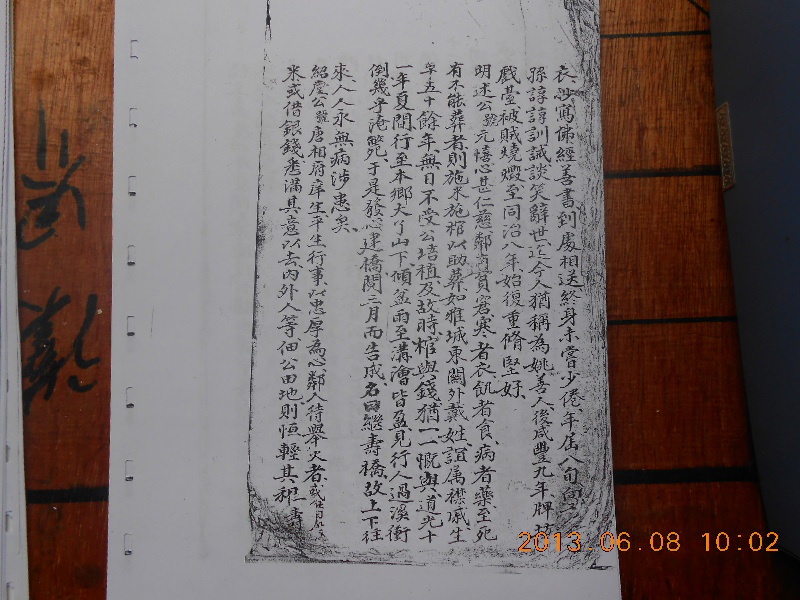 衣,抄寫佛經善書,到處相送,終身未嘗少倦,年屆八旬
孫諄諄訓誡,談笑辭世,迄今人猶稱為姚善人,後咸豐九年,牌坊
戲臺被賊燒燬,至同治八年,始復重脩堅好、
明述公號元禧,心甚仁慈,鄰有貧窘寒者衣,飢者食,病者藥,至死
有不能葬者,則施米施棺以助葬,如雅城東關外戴姓,誼属襟戚,生
年五十餘年,無日不受公培植,及故時,棺與錢猶一一慨與,道光十
一年夏間,行至本鄉大了山下,傾盆雨至,溝澮皆盈,見行人過溪衝
倒,幾乎淹斃,于是發心建橋,閱三月而告成,名曰繼壽橋,故上下往
來人,人永無病涉患矣、
紹慶公號唐相,府庠生,平生行事,以忠厚為心,鄰人待舉火者,或
米或借銀錢,悉滿其意以去,內外人等,佃公田地,則恒輕其租,壽
2013.06.08 10:02